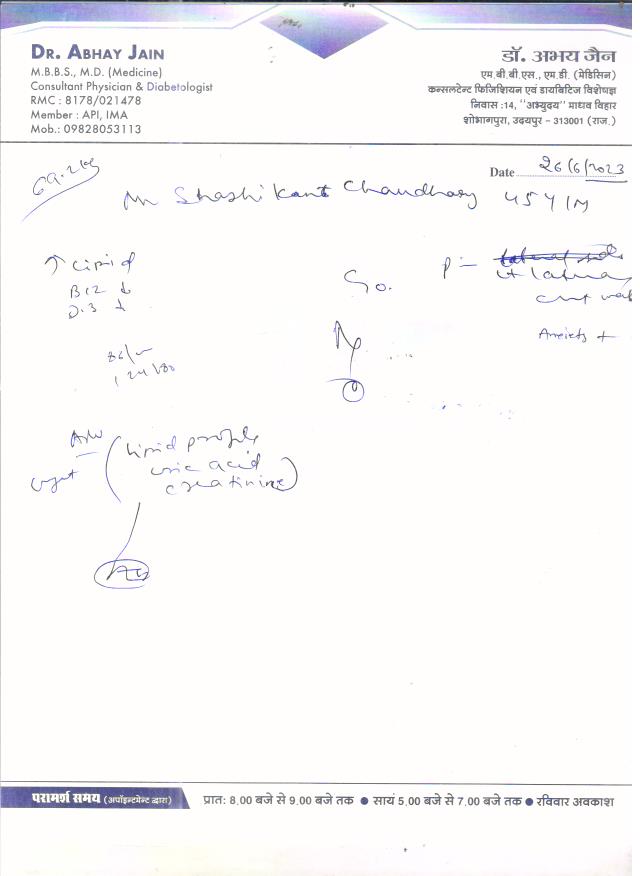 DR. ABHAY JAIN
M.B.B.S., M.D. (Medicine)
Consultant Physician & Diabetologist
RMC : 8178/021478
Member : API, IMA
Mob.: 09828053113
डॉ. अभय जैन
एम.बी.बी.एस., एम.डी. (मेडिसिन)
कन्सलटेन्ट फिजिशियन एवं डायबिटिज विशेषज्ञ
निवास :14, "अभ्युदय" माधव विहार
शोभागपुरा, उदयपुर - 313001 (राज.)
Date 26/6/2023
69.2kg
Mr Shashi Kant Chaudhary 45Y/M
↑ Lipid
B12 ↓
D.3 ↓
Anxiety +
124/80
Lipid profile
uric acid
creatinine
परामर्श समय (अपॉइन्टमेन्ट द्वारा) प्रात: 8.00 बजे से 9.00 बजे तक ● सायं 5.00 बजे से 7.00 बजे तक ● रविवार अवकाश